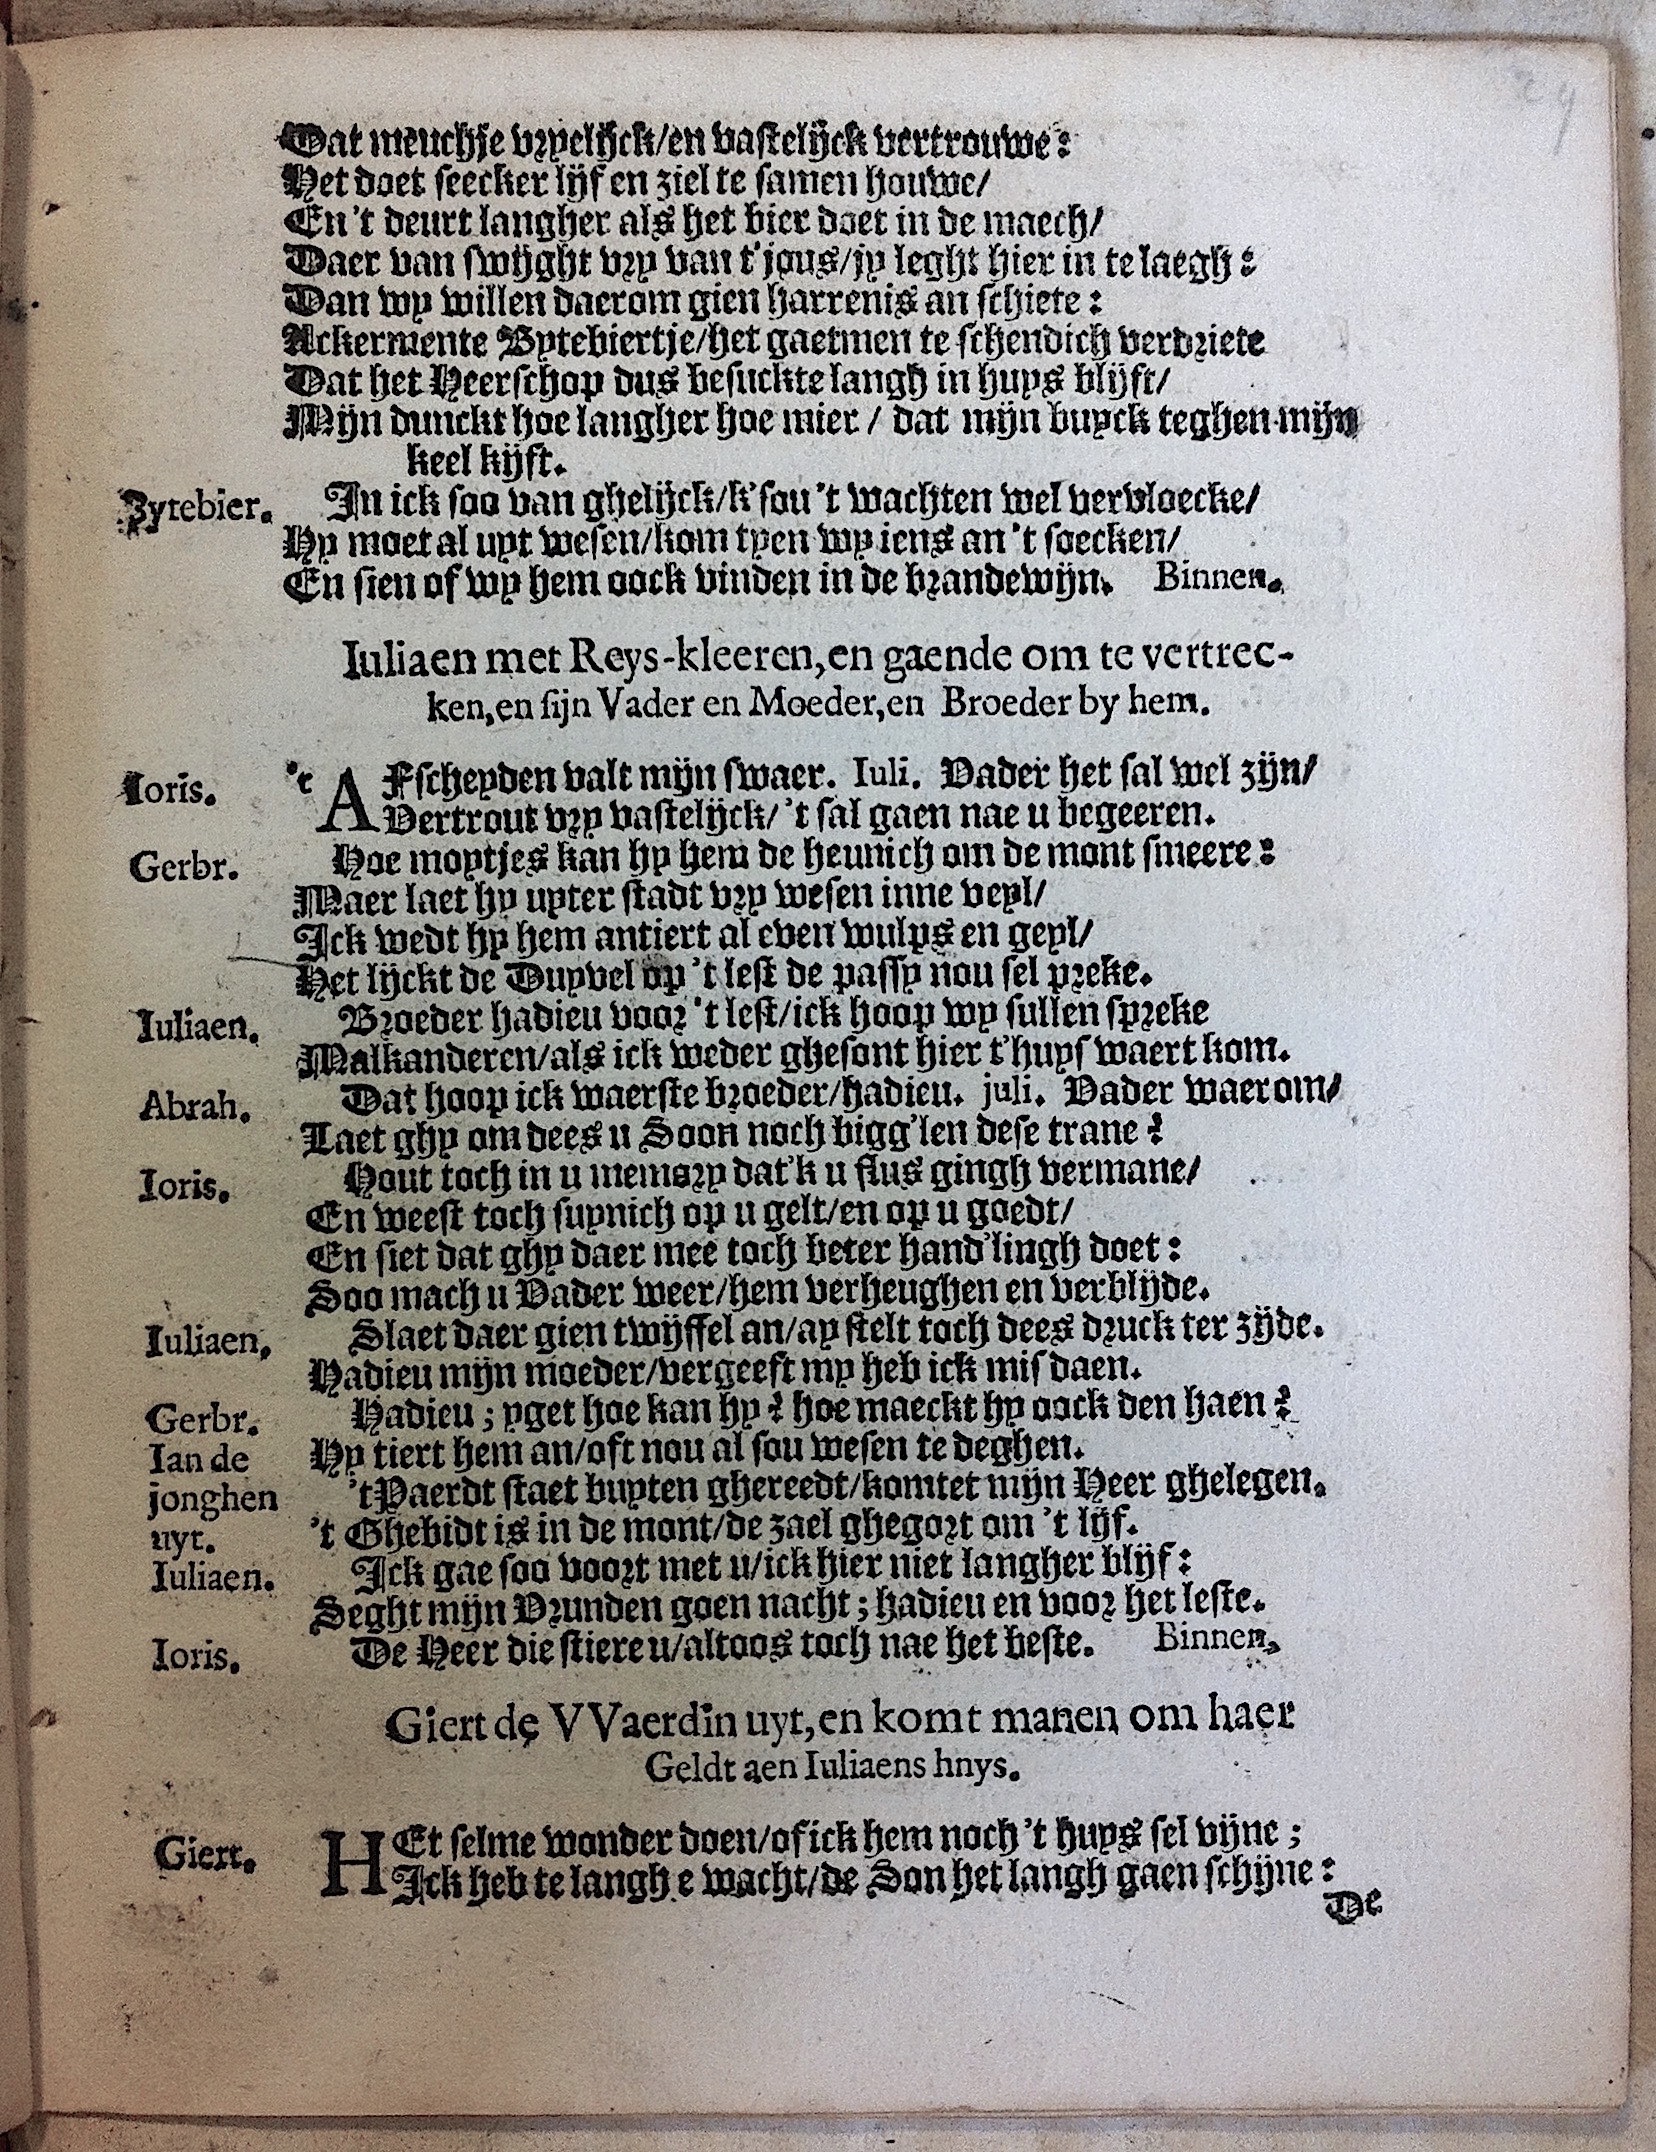 Dat meuchje vryelijck/en vastelijck vertrouwe:
Het doet seecker lijf en ziel te samen houwe/
En 't deurt langher als het bier doet in de maech/
Daer van swijght vry van t'jous/jy leght hier in te laegh:
Dan wy willen daerom gien harrenis an schiete:
Ackermente Bytebiertje/het gaetmen te schendich verdriete
Dat het Heerschop dus besuckte langh in huys blijft/
Mijn dunckt hoe langher hoe mier / dat mijn buyck teghen mijn
keel kijft.
Bytebier. In ick soo van ghelijck/k'sou 't wachten wel vervloecke/
Hy moet al uyt wesen/kom tyen wy iens an 't soecken/
En sien of wy hem oock vinden in de brandewijn. Binnen.
Iuliaen met Reys-kleeren,en gaende om te vertrec-
ken,en sijn Vader en Moeder,en Broeder by hem.
Ioris. 't AFscheyden valt mijn swaer. Iuli. Vader het sal wel zijn/
Vertrout vry vastelijck/'t sal gaen nae u begeeren.
Gerbr. Hoe moytjes kan hy hem de heunich om de mont smeere:
Maer laet hy uyter stadt vry wesen inne veyl/
Ick wedt hy hem antiert al even wulps en geyl/
Het lijckt de Duyvel op 't lest de passy nou sel preke.
Iuliaen. Broeder hadieu voor 't lest/ick hoop wy sullen spreke
Malkanderen/als ick weder ghesont hier t'huys waert kom.
Abrah. Dat hoop ick waerste broeder/hadieu. juli. Vader waerom/
Laet ghy om dees u Soon noch bigg'len dese trane?
Ioris. Hout toch in u memory dat'k u flus gingh vermane/
En weest toch suynich op u gelt/en op u goedt/
En siet dat ghy daer mee toch beter hand'lingh doet:
Soo mach u Vader weer/hem verheughen en verblijde.
Iuliaen. Slaet daer gien twijffel an/ay stelt toch dees druck ter zijde.
Hadieu mijn moeder/vergeeft my heb ick mis daen.
Gerbr. Hadieu; yget hoe kan hy? hoe maeckt hy oock den haen?
Ian de Hy tiert hem an/oft nou al sou wesen te deghen.
jonghen 't Paerdt staet buyten ghereedt/komtet mijn Heer ghelegen.
uyt. 't Ghebidt is in de mont/de zael ghegort om 't lijf.
Iuliaen. Ick gae soo voort met u/ick hier niet langher blijf:
Seght mijn Vrunden goen nacht; hadieu en voor het leste.
Ioris. De Heer die stiere u/altoos toch nae het beste. Binnen.
Giert de VVaerdin uyt,en komt manen om haer
Geldt aen Iuliaens hnys.
Giert. HEt selme wonder doen/of ick hem noch 't huys sel vijne;
Ick heb te langh e wacht/de Son het langh gaen schijne:
De